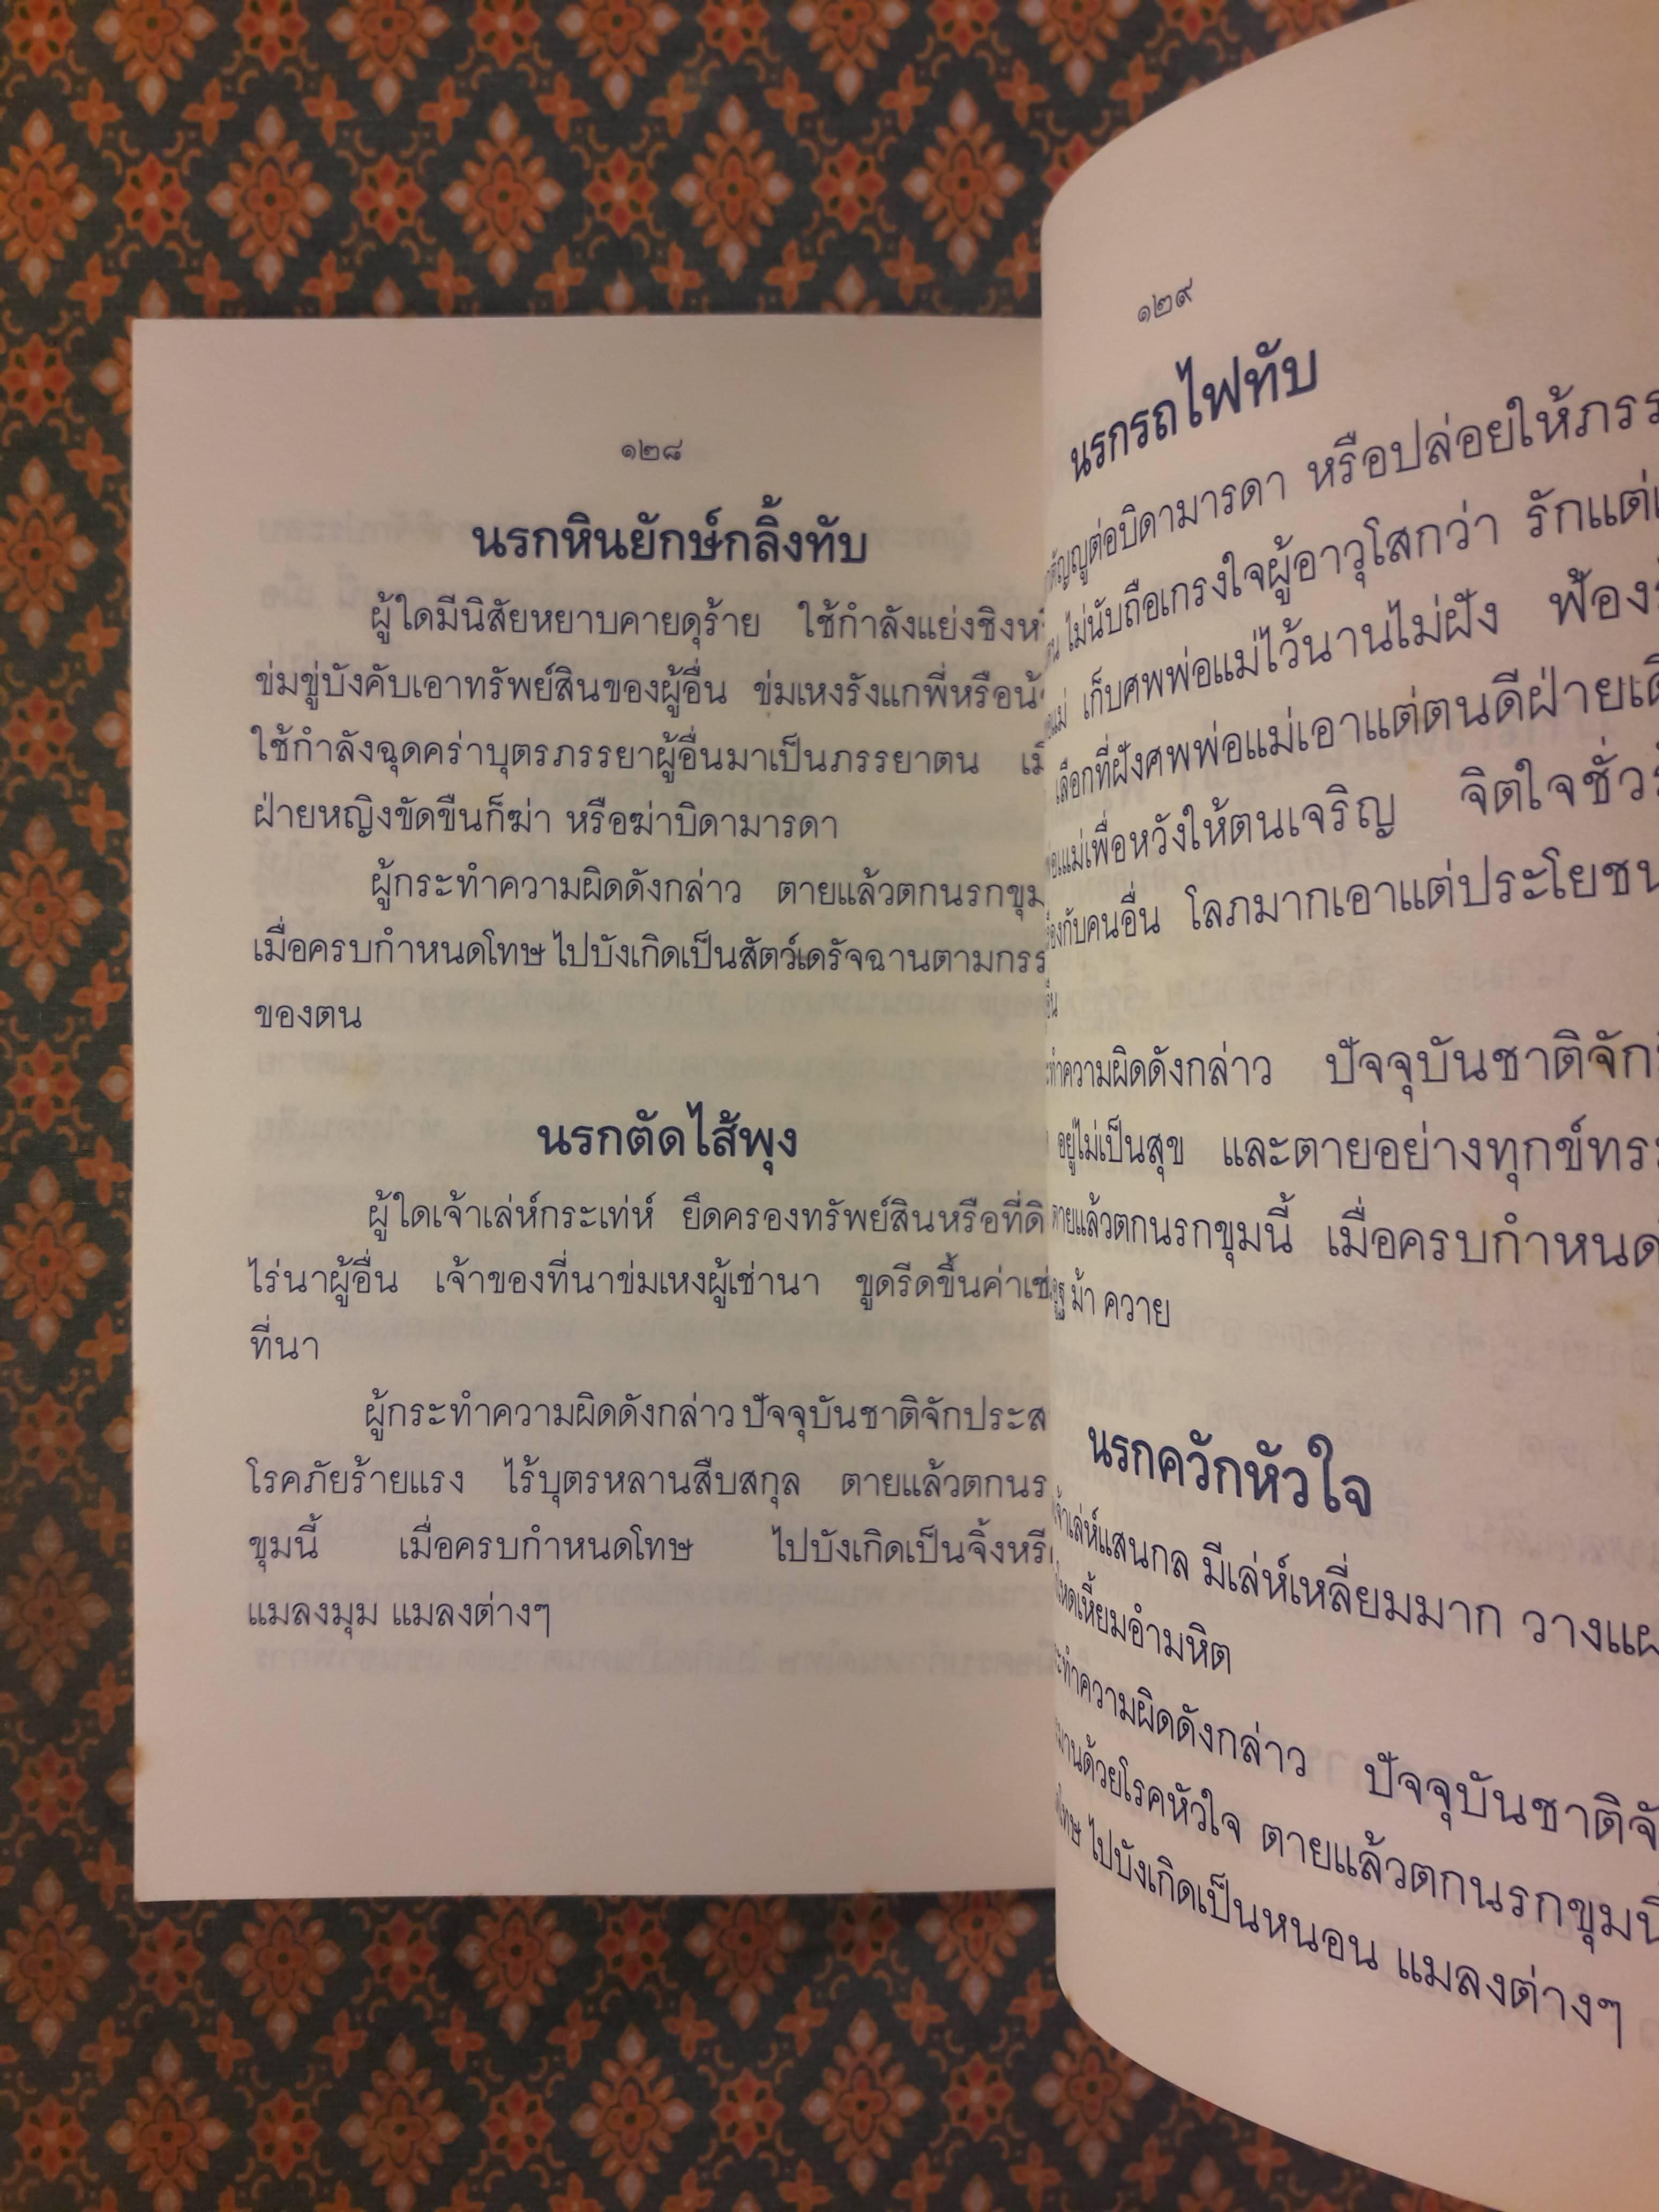 ๑๒๘
นรกหินยักษ์กลิ้งทับ
ผู้ใดมีนิสัยหยาบคายดุร้าย ใช้กำลังแย่งชิง
ข่มขู่บังคับเอาทรัพย์สินของผู้อื่น ข่มเหงรังแกพี่หรือ
ใช้กำลังฉุดคร่าบุตรภรรยาผู้อื่นมาเป็นภรรยาตน
ฝ่ายหญิงขัดขืนก็ฆ่า หรือฆ่าบิดามารดา
ผู้กระทำความผิดดังกล่าว ตายแล้วตกนรกขุม
เมื่อครบกำหนดโทษ ไปบังเกิดเป็นสัตว์เดรัจฉานตาม
ของตน
นรกตัดไส้พุง
ผู้ใดเจ้าเล่ห์กระเท่ห์ ยึดครองทรัพย์สินหรือ
ไร่นาผู้อื่น เจ้าของที่นาข่มเหงผู้เช่านา ขูดรีดขึ้น
ที่นา
ผู้กระทำความผิดดังกล่าว ปัจจุบันชาติจัก
โรคภัยร้ายแรง ไร้บุตรหลานสืบสกุล ตายแล้วตก
ขุมนี้ เมื่อครบกำหนดโทษ ไปบังเกิดเป็น
แมลงมุม แมลงต่างๆ
๑๒๙
นรกรถไฟทับ
ต่อบิดามารดา หรือปล่อยให้
ไม่นับถือเกรงใจผู้อาวุโสกว่า รักแต่
เก็บศพพ่อแม่ไว้นานไม่ฝัง ฟ้อง
เลือกที่ฝังศพพ่อแม่เอาแต่ตนดีฝ่าย
เพื่อหวังให้ตนเจริญ จิตใจชั่ว
กับคนอื่น โลภมากเอาแต่
ความผิดดังกล่าว ปัจจุบันชาติจัก
อยู่ไม่เป็นสุข และตายอย่างทุกข์
ตายแล้วตกนรกขุมนี้ เมื่อครบกำหนด
ม้า ควาย
นรกควักหัวใจ
เจ้าเล่ห์แสนกล มีเล่ห์เหลี่ยมมาก
เหี้ยมอำมหิต
ความผิดดังกล่าว ปัจจุบันชาติ
ด้วยโรคหัวใจ ตายแล้วตกนรกขุม
ไปบังเกิดเป็นหนอน แมลงต่างๆ